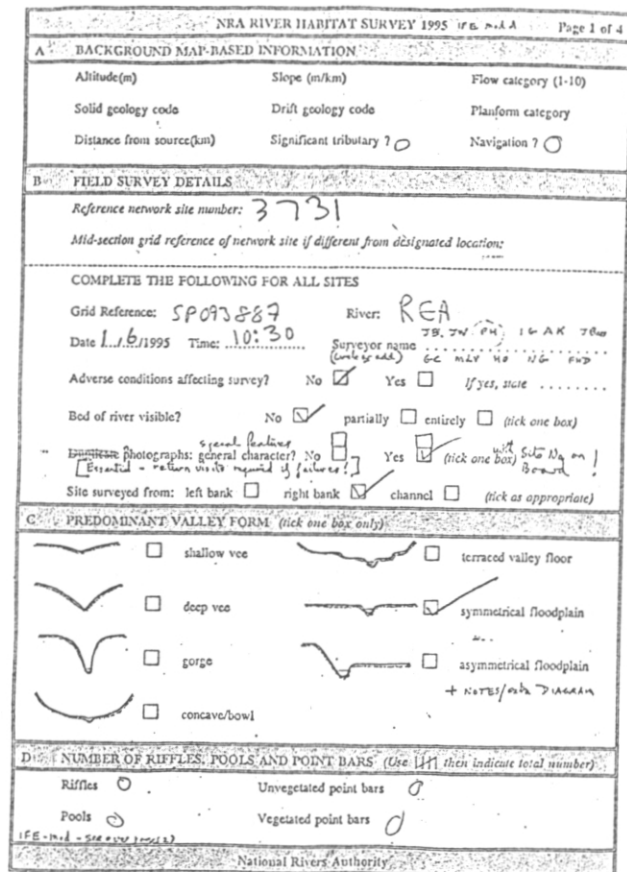 NRA RIVER HABITAT SURVEY 1995 IFE mod A Page 1 of 4
A BACKGROUND MAP-BASED INFORMATION
Altitude(m) Slope (m/km) Flow category (1-10)
Solid geology code Drift geology code Planform category
Distance from source(km) Significant tributary ? O Navigation ? O
B FIELD SURVEY DETAILS
Reference network site number: 3731
Mid-section grid reference of network site if different from designated location:
COMPLETE THE FOLLOWING FOR ALL SITES
Grid Reference: SP093887 River: REA
JB, JW PH IG AK
Date 1/6/1995 Time: 10:30 Surveyor name
GC MLY MO NG FWD
Adverse conditions affecting survey? No Yes If yes, state ........
Bed of river visible? No partially entirely (tick one box)
special features
photographs: general character? No Yes (tick one box) with Site No on Board!
[Essential - return visits required if failures!]
Site surveyed from: left bank right bank channel (tick as appropriate)
C PREDOMINANT VALLEY FORM (tick one box only)
shallow vee terraced valley floor
deep vee symmetrical floodplain
gorge asymmetrical floodplain
+ NOTES/ DIAGRAM
concave/bowl
D NUMBER OF RIFFLES, POOLS AND POINT BARS (Use then indicate total number)
Riffles O Unvegetated point bars O
Pools O Vegetated point bars O
IFE-mod - see over
National Rivers Authority